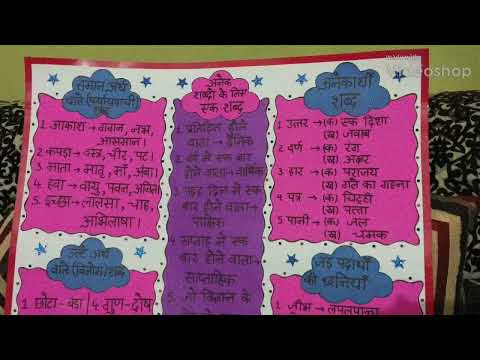 समान अर्थ
वाले (पर्यायवाची)
शब्द
1. आकाश → गगन, नभ,
आसमान।
2. कपड़ा → वस्त्र, चीर, पट।
3. माता → मातृ, माँ, अंबा।
4. हवा → वायु, पवन, अनिल।
5. इच्छा → लालसा, चाह,
अभिलाषा।
उल्टे अर्थ
वाले (विलोम) शब्द
1. छोटा - बड़ा
4 गुण - दोष
अनेक
शब्दों के लिए
एक शब्द
1. प्रतिदिन होने
वाला → दैनिक
2. वर्ष में एक बार
होने वाला → वार्षिक
3. पंद्रह दिन में एक
बार होने वाला →
पाक्षिक
4. सप्ताह में एक
बार होने वाला →
साप्ताहिक
5. जो विज्ञान के
अनेकार्थी
शब्द
1. उत्तर → (क) एक दिशा
(ख) जवाब
2. वर्ण → (क) रंग
(ख) अक्षर
3. हार → (क) पराजय
(ख) गले का गहना
4. पत्र → (क) चिट्ठी
(ख) पत्ता
5. पानी → (क) जल
(ख) चमक
जड़ पदार्थों
की ध्वनियाँ
1. जीभ → लपलपाना
Videoshop